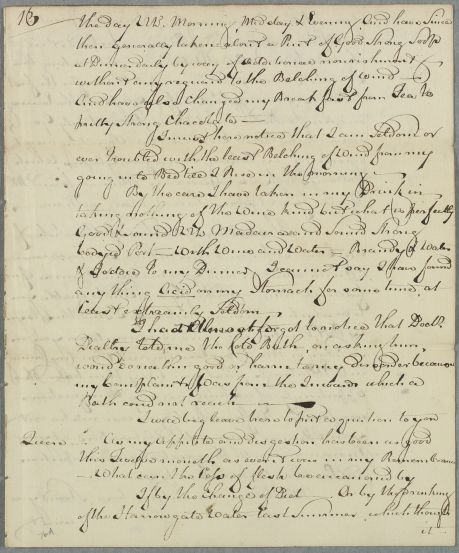 18
the day & Vs. Morning, Midday & Evening And have Since
then Generally taken about a Pint of Good Strong
at Dinner daily by way of nourishment
without any regard to the Belching of Wind
And have also Changed my Breakfast from Tea to
pretty Strong Chacolate —
I must here notice that I am Seldom or
ever Troubled with the least Belching of Wind from my
going into Bed till I Rise in the morning —
By the care I have taken in my Drink in
taking nothing of the Wine kind but what is perfectly
Good & Sound Madeira and Sound Strong
bodyed Port — With Wine and Water — Brandy & Water
to my Dinner, I cannot say I have found
any thing Acid on my Stomach for some time, at
least extreamly Seldom
I had Almost forgot to notice that Doctr.
told me the Cold Bath, on asking him,
would do neither good or harm to my disorder because
my Complaint was from the Inwards which a
Bath coud not reach —
I woud beg leave here to put a question to you
Queere — As my Appetite and digestion has been as good
this Twelve month as ever it were in my Remembrance
— What can the Loss of flesh be occasioned by
If by the Change of Diet — Or by the drinking
of the Harrowgate Water last Summer which though
it —